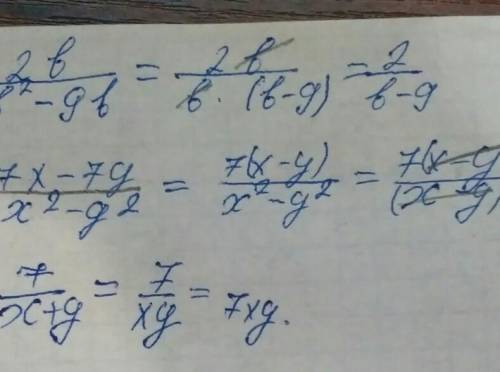 2b/b² - 9b = 2b/b · (b-9) = 2/b-9
7x - 7y/x² - y² = 7(x-y)/x² - y² = 7(x-y/(x-y)
7/x+y = 7/xy = 7xy.